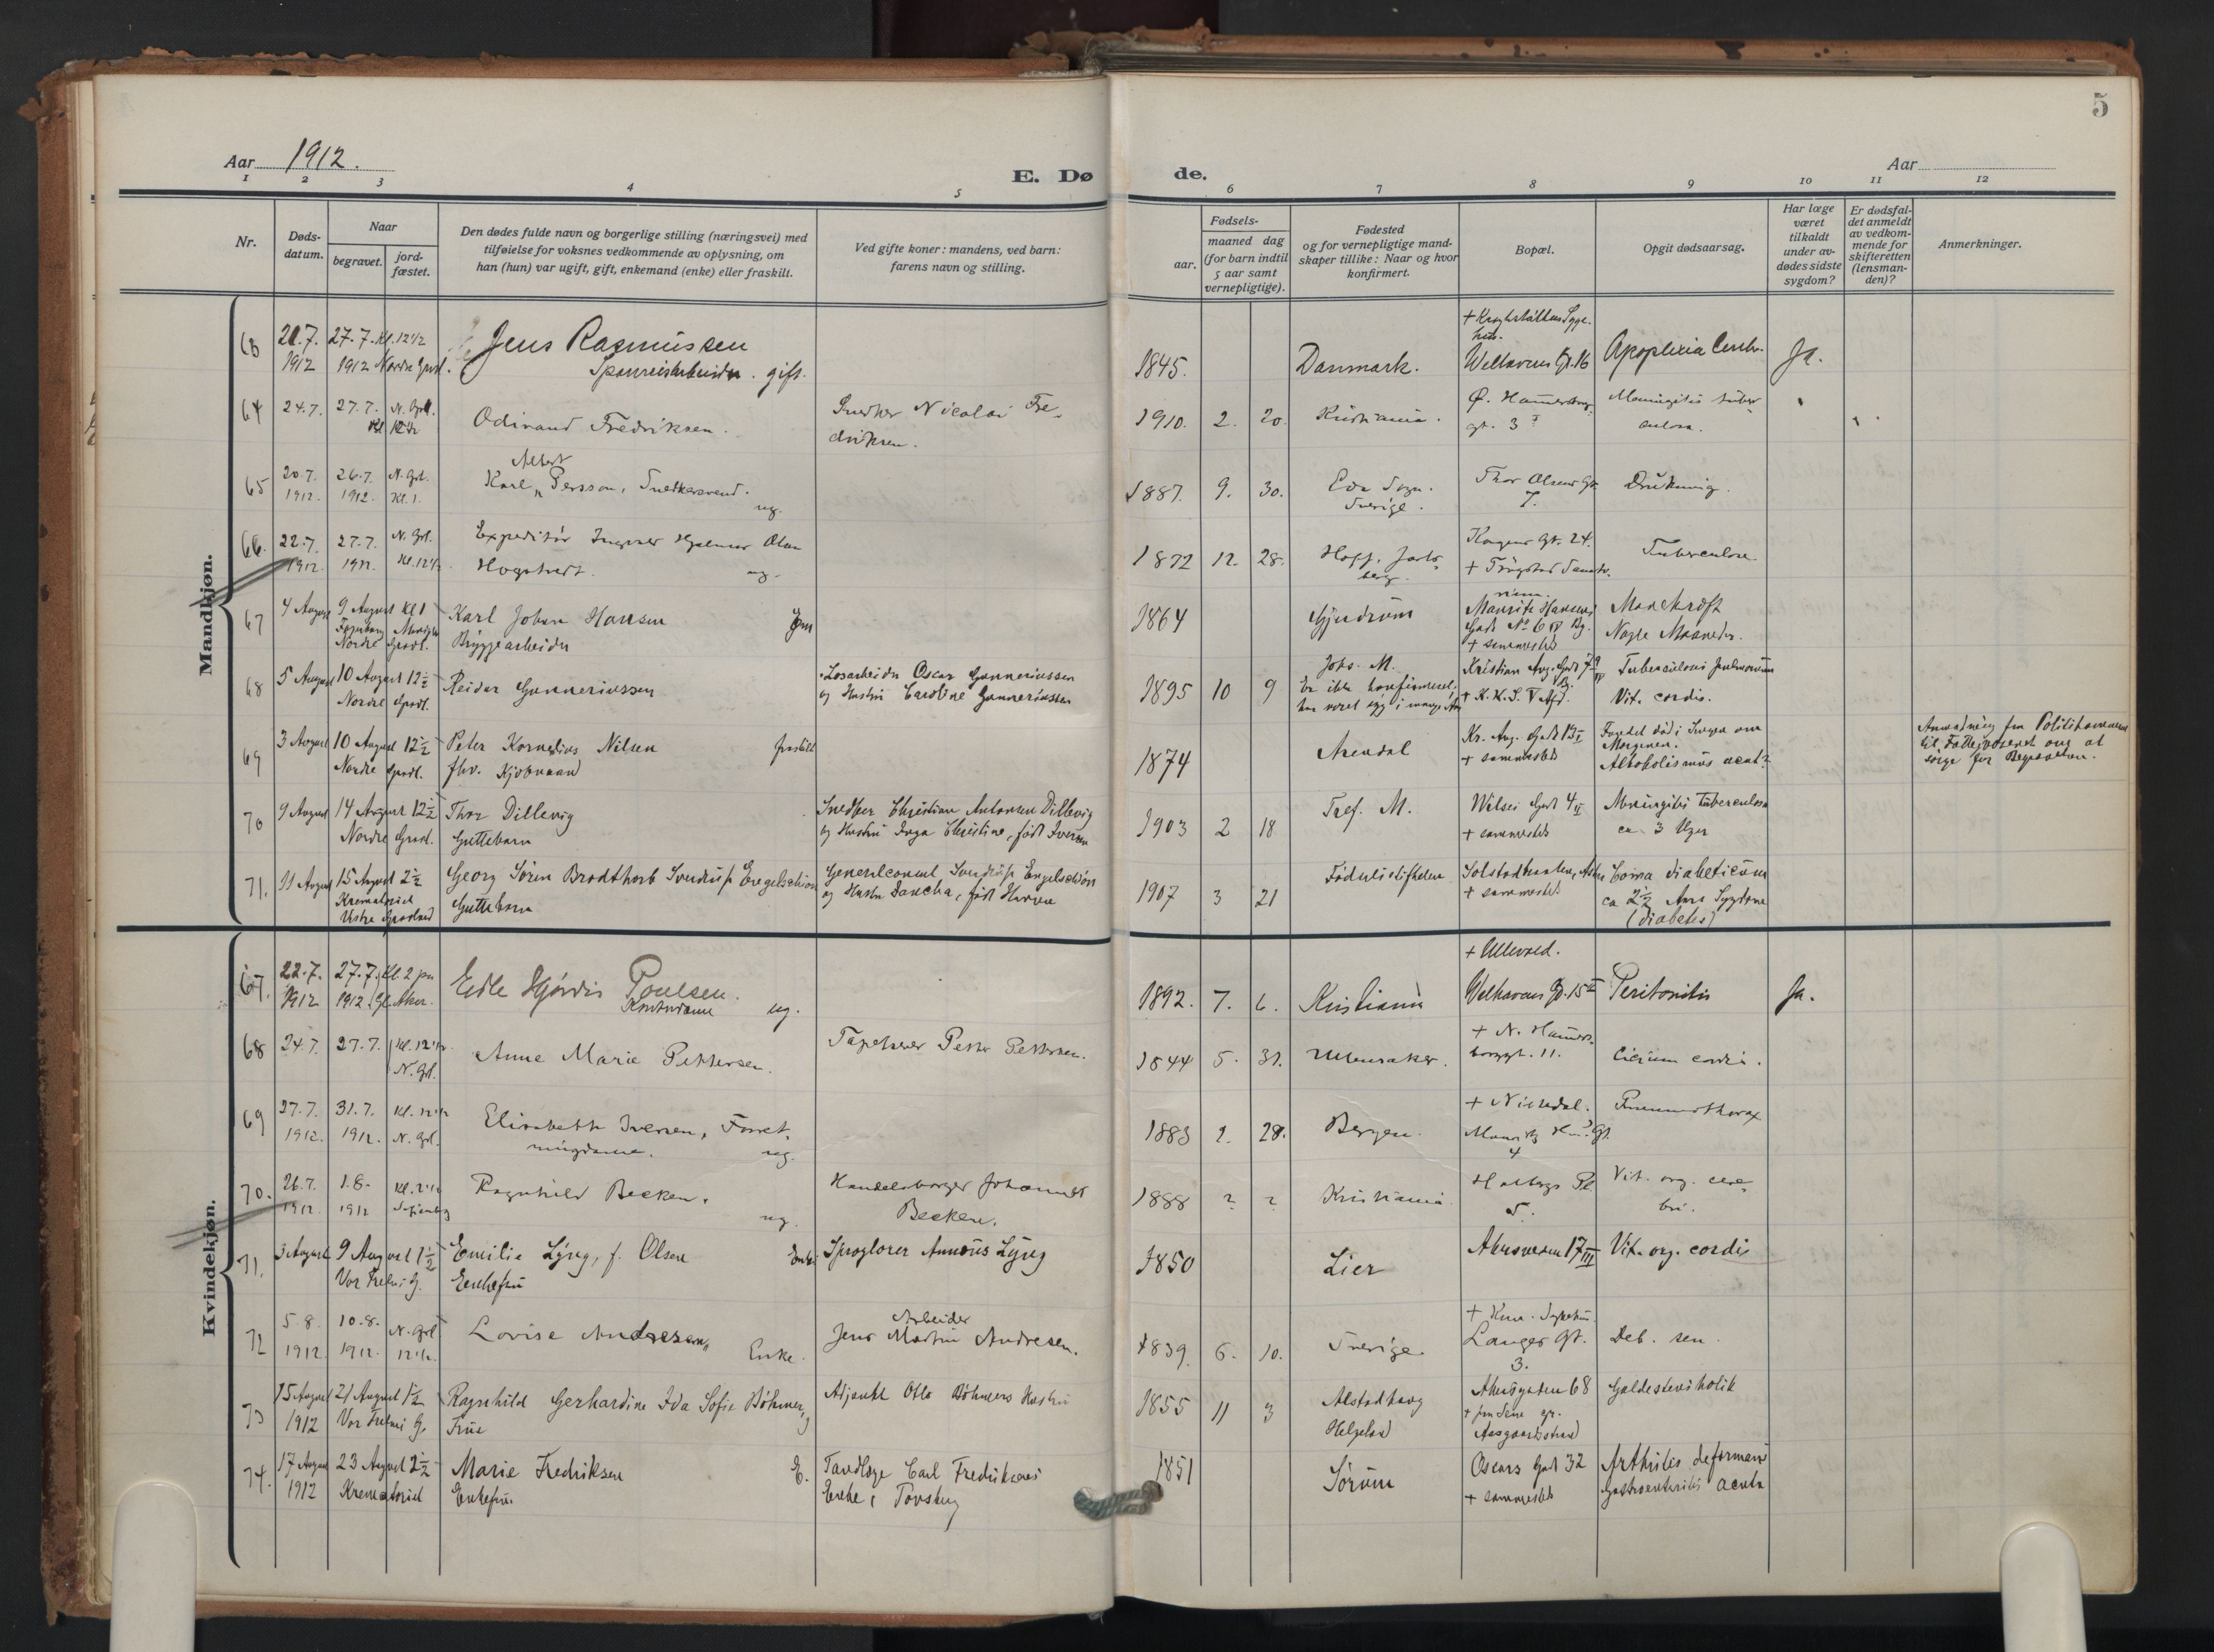 5
Aar 1912.
Aar
E. Dø
de.
1 2 3 4 5 6 7 8 9 10 11 12
Nr.
Døds-
datum.
Naar
begravet.
jord-
fæstet.
Den dødes fulde navn og borgerlige stilling (næringsvei) med
tilføielse for voksnes vedkommende av oplysning, om
han (hun) var ugift, gift, enkemand (enke) eller fraskilt.
Ved gifte koner: mandens, ved barn:
farens navn og stilling.
Fødsels-
aar.
maaned dag
(for barn indtil
5 aar samt
vernepligtige).
Fødested
og for vernepligtige mand-
skaper tillike: Naar og hvor
konfirmert.
Bopæl.
Opgit dødsaarsag.
Har læge
været
tilkaldt
under av-
dødes sidste
sygdom?
Er dødsfal-
det anmeldt
av vedkom-
mende for
skifteretten
(lensman-
den)?
Anmerkninger.
Mandkjøn.
63 21.7. 1912 27.7. 1912 Kl. 12 1/2 Nordre Gravl.
Jens Rasmussen
gift.
1845. Danmark. Welhavens Gt. 16 Apoplexia Ja.
64 24.7. 27.7. N. Grl. Kl 12 1/2
Odinand Fredriksen.
Snedker Nicolai Fre-
driksen.
1910. 2. 20. Kristiania. Ø. Hammersborg
gt. 3 Meningitis tuber-
culosa.
65 20.7. 1912. 26.7. 1912. N. Grl. Kl. 1.
Albert
Karl Persson, Snedkersvend.
ug.
1887. 9. 30. Eda Sogn.
Sverige. Thor Olsens Gt.
7. Drukning.
66. 22.7. 1912. 27.7. 1912. N. Grl. Kl. 12 1/2.
Expeditør Ingvar Hjalmar Olsen
ug.
1872 12. 28. Hoff, Jarls-
berg. Kongens Gt. 24.
Tuberculose
67 4 August 9 August Kl 1
Nordre Gravl.
Karl Johan Hansen
Bryggearbeider
1864 Gjerdrum Mauritz Hansens
Gade No 6
+ sammesteds Mavekræft
Nogle Maaneder.
68 5 August 10 August 12 1/2
Nordre Gravl.
Reidar Gunneriussen
Løsarbeider Oscar Gunneriussen
og Hustru Caroline Gunneriussen
1895 10 9 Johs. M.
Er ikke konfirmeret,
har været syg i mange Aar Kristian Aug. Gade 7
+ K. K. S. V Afd. Tuberculosis pulmonum
Vit. cordis.
69 3 August 10 August 12 1/2
Nordre Gravl.
Peter Kornelius Nilsen fraskilt
fhv. Kjøbmand
1874 Arendal Kr. Aug. Gade 19 I
+ sammesteds Fundet død i Sengen om
Morgenen.
Alkoholismus acut?
Anvisning fra Politikammeret
til Fattigvæsenet om at
sørge for Begravelsen.
70 9 August 14 August 12 1/2
Nordre Gravl.
Thor Dillevig
Guttebarn
Snedker Christian Antonsen Dillevig
og Hustru Inga Christine, født Iversen
1903 2 18 Tref. M. Wilses Gade 4 II
+ sammesteds Meningitis tuberculosa
ca. 3 Uger
71. 11 August 15 August 2 1/2
Krematoriet
Vestre Gravlund
Georg Sören Brodtkorb Sverdrup Engelschiøn
Guttebarn
Generalconsul Sverdrup Engelschiøn
og Hustru født
1907 3 21 Fødselsstiftelsen
+ sammesteds Coma diabeticum
ca 2 1/2 Aars Sygdom
(diabetes)
Kvindekjøn.
67. 22.7. 1912 27.7. 1912. Kl. 2 Gl. Aker.
Edle Hjørdis Poulsen.
Kontordame ug.
1892. 7. 6. Kristiania + Ullevaal.
Welhavens Gt. 15 II Peritonitis Ja.
68 24.7. 27.7. Kl. 12 1/2. N. Grl.
Anne Marie Pettersen.
Tapetserer Petter Pettersen.
1844 5. 31. Ullensaker. + N. Hammers-
borggt. 11. Vicium cordis.
69 27.7. 1912. 31.7. 1912. Kl. 12 1/2 N. Grl.
Elisabeth Iversen, Forret-
ningsdame. ug.
1883 2. 28. Bergen. Mauritz Hans. Gt.
4 Pneumothorax
70. 26.7. 1912. 1.8. 1912
Ragnhild Becken.
ug.
Handelsborger Johannes
Becken.
1888 ? ? Kristiania. Holbergs Pl.
5. Vit. org. cere-
bri.
71. 3 August 9 August 1 1/2
Vor Frelsers G.
Emilie Lyng, f. Olsen Enke
Enkefru
Sproglærer Lyng
1850 Lier Akersveien 17 III Vit. org. cordis
72 5.8. 1912 10.8. 1912. N. Grl 12 1/2.
Lovise Andresen,
Enke.
Arbeider
Jens Martin Andresen.
1839. 6. 10. Sverige. Langes Gt.
3. Deb. sen.
73 15 August 1912 21 August 1 1/2
Vor Frelsers G.
Ragnhild Gerhardine Ida Sofie Bøhmer, g
Frue
Adjunkt Otto Bøhmers Hustru
1855 11 3 Alstadhaug
Helgeland Akersgaden 68
Aasgaardstrand Galdestenskolik
74. 17 August 1912 23 August 2 1/2
Krematoriet
Marie Fredriksen E.
Enkefru
Tandlæge Carl Fredriksens
Enke,
1851 Sørum Oscars Gade 32
+ sammesteds Arthritis deformans
Gastroenteritis acuta